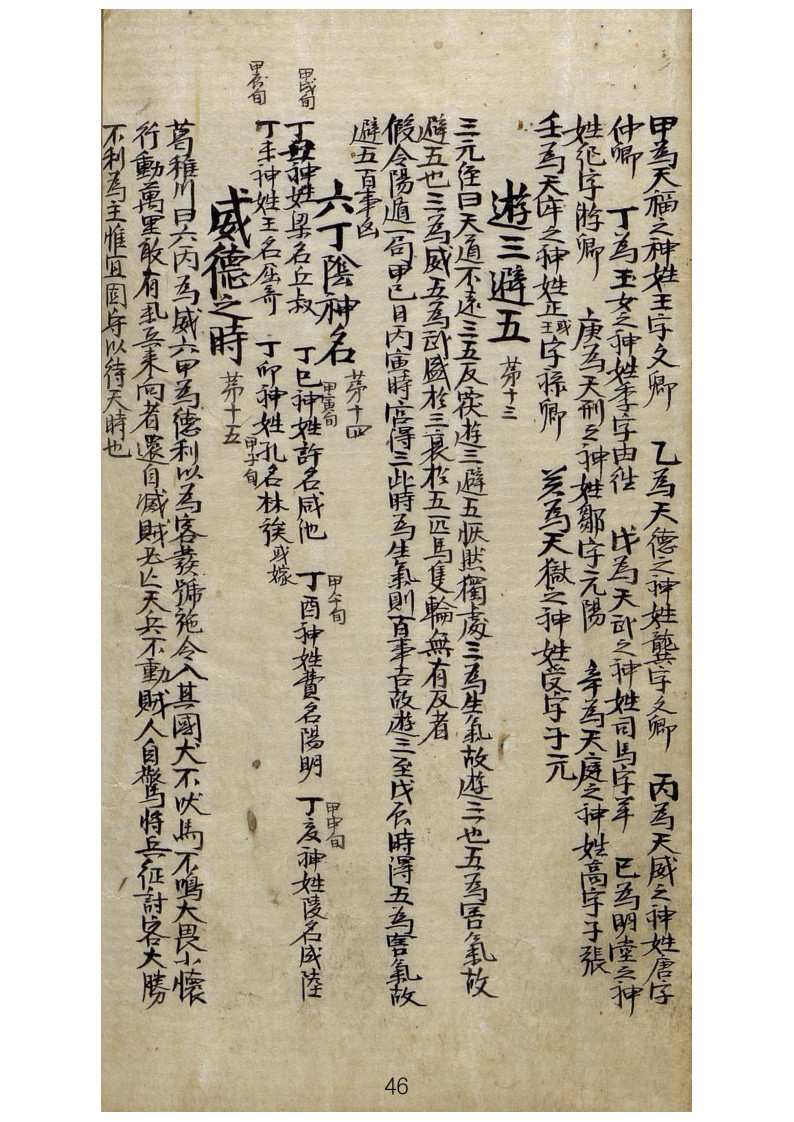 甲為天福之神姓王字文卿 乙為天德之神姓龔字文卿 丙為天威之神姓唐字
仲卿 丁為玉女之神姓季字由徃 戊為天武之神姓司馬字羊 己為明堂之神
姓纪字游卿 庚為天刑之神姓鄒字元陽 辛為天庭之神姓高字子張
壬為天牢之神姓王或正字禄卿 癸為天獄之神姓受字子元
遊三避五 苐十三
三元經曰天道不遠三五反覆遊三避五恢然獨處三為生氣故遊三也五為害氣故
避五也三為威五為武盛於三衰於五匹馬隻輪無有反者
假令陽遁一局甲己日丙寅時宫得三此時為生氣則百事吉故遊三至戊辰時得五為害氣故
避五百事凶
六丁陰神名 苐十四
甲戌旬 丁丑神姓梁名丘叔 甲寅旬 丁巳神姓許名咸池 甲午旬 丁酉神姓費名陽明 甲申旬 丁亥神姓陵名成陸
甲辰旬 丁未神姓王名屈奇 甲子旬 丁卯神姓孔名林族或嫁
威德之時 苐十五
葛稚川曰六丙為威六甲為德利以為客發號施令入其國犬不吠馬不鳴大畏小懷
行動萬里敢有乱兵来向者還自滅賊必亡天兵不動賊人自驚將兵征討客大勝
不利為主惟宜固守以待天時也
46